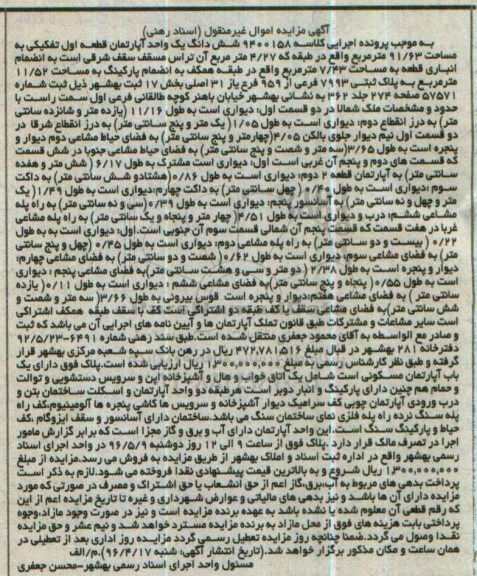 آگهی مزایده اموال غیرمنقول (اسناد رهنی)
به موجب پرونده اجرایی کلاسه ۹۴۰۰۱۵۸ شش دانگ یک واحد آپارتمان قطعه اول تفکیکی به
مساحت ۹۱/۶۳ مترمربع واقع در طبقه یک که ۴/۲۷ متر مربع آن تراس مسقف سقف شرقی است به انضمام
انباری قطعه به مساحت ۷/۷۳ مترمربع واقع در طبقه همکف به انضمام پارکینگ به مساحت ۱۱/۵۲
مترمربع به پلاک ثبتی ۷۹۹۳ فرعی از ۹۵۹ فرعی باز ۳۱ اصلی بخش ۱۷ ثبت بهشهر ذیل ثبت شماره
۵۷۵۷۱ صفحه ۲۷۴ جلد ۳۶۲ به نشانی بهشهر خیابان باهنر کوچه طالقانی فرعی اول سمت راست با
حدود و مشخصات ملک شمالا در دو قسمت اول: دیواری است به طول ۱۱/۱۶ (یازده متر و شانزده سانتی
متر) به درز انقطاع دوم: دیواری است به طول ۱/۰۵ (یک متر و پنج سانتی متر) به درز انقطاع شرقا در
دو قسمت اول نیم دیوار جلوی بالکن ۴/۰۵ (چهار متر و پنج سانتی متر) به فضای حیاط مشاعی دوم دیوار و
پنجره است به طول ۳/۶۵ (سه متر و شصت و پنج سانتی متر) به فضای حیاط مشاعی جنوبا در شش قسمت
که قسمت های دوم و پنجم آن غربی است اول: دیواری است مشترک به طول ۶/۱۷ (شش متر و هفده
سانتی متر) به آپارتمان قطعه ۲ دوم: دیواری است به طول ۰/۸۶ (هشتادو شش سانتی متر) به داکت
سوم: دیواری است به طول ۰/۴۰ (چهل سانتی متر) به داکت چهارم: دیواری است به طول ۱/۴۹ (یک
متر و چهل و نه سانتی متر) به آسانسور پنجم: دیواری است به طول ۰/۳۹ (سی و نه سانتی متر) به راه پله
مشاعی ششم: درب و دیواری است به طول ۴/۵۱ (چهار متر و پنجاه و یک سانتی متر) به راه پله مشاعی
غربا در هفت قسمت که قسمت پنجم آن شمالی قسمت سوم آن جنوبی است. اول: دیواری است به به طول
۰/۲۲ (بیست و دو سانتی متر) به راه پله مشاعی دوم: دیواری است به طول ۰/۴۵ (چهل و پنج سانتی
متر) به فضای مشاعی سوم: دیواری است به طول ۰/۶۲ (شصت و دو سانتی متر) به فضای مشاعی چهارم:
دیوار و پنجره است به طول ۲/۳۸ (دو متر و سی و هشت سانتی متر) به فضای مشاعی پنجم: دیواری
است به طول ۰/۵۵ (پنجاه و پنج سانتی متر) به فضای مشاعی ششم: دیواری است به طول ۰/۱۱ (یازده
سانتی متر) به فضای مشاعی هفتم: دیوار و پنجره است قوس بیرونی به طول ۳/۶۶ (سه متر و شصت و
شش سانتی متر) به فضای مشاعی سقف با کف طبقه دو اشتراکی است کف با سقف طبقه همکف اشتراکی
است سایر مشاعات و مشترکات طبق قانون تملک آپارتمان ها و آیین نامه های اجرایی آن می باشد که ثبت
و صادر مع الواسطه به آقای محمود جعفری منتقل شده است. طبق سند رهنی شماره ۶۴۹۱-۹۲/۵/۲۳
دفترخانه ۲۸۱ بهشهر در قبال مبلغ ۴۷۲,۷۸۱,۵۱۶ ریال در رهن بانک سپه شعبه مرکزی بهشهر قرار
گرفته و طبق نظر کارشناس رسمی به مبلغ ۱,۳۰۰,۰۰۰,۰۰۰ ریال ارزیابی شده است. پلاک فوق دارای یک
باب آپارتمان مسکونی است شامل یک اتاق خواب و هال و آشپزخانه اپن و سرویس دستشویی و توالت
و حمام هم چنین دارای پارکینگ و انبار دوبر است هر طبقه دو واحد آپارتمان و اسکلت ساختمان بتن و
درب ورودی آپارتمان چوبی کف سرامیک دیوار آشپزخانه و سرویس ها کاشی پنجره ها آلومینیوم، کف راه
پله سنگ نرده راه پله فلزی نمای ساختمان سنگ می باشد. ساختمان دارای آسانسور و سقف ایزوگام، کف
حیاط و پارکینگ سنگ است. این واحد آپارتمان دارای آب و برق و گاز مجزا است که برابر گزارش مامور
اجرا در تصرف مالک قرار دارد. پلاک فوق از ساعت ۹ الی ۱۲ روز دوشنبه ۹۶/۵/۹ در واحد اجرای اسناد
رسمی بهشهر واقع در اداره ثبت اسناد و املاک بهشهر از طریق مزایده به فروش می رسد. مزایده از مبلغ
۱,۳۰۰,۰۰۰,۰۰۰ ریال شروع و به بالاترین قیمت پیشنهادی نقدا فروخته می شود. لازم به ذکر است
پرداخت بدهی های مربوط به آب، برق، گاز اعم از حق انشعاب یا حق اشتراک و مصرف در صورتی که مورد
مزایده دارای آن ها باشد و نیز بدهی های مالیاتی و عوارض شهرداری و غیره تا تاریخ مزایده اعم از این
که رقم قطعی آن معلوم شده یا نشده باشد به عهده برنده مزایده است و نیز در صورت وجود مازاد، وجوه
پرداختی بابت هزینه های فوق از محل مازاد به برنده مزایده مسترد خواهد شد و نیم عشر و حق مزایده
نقدا وصول می گردد. ضمنا چنانچه روز مزایده تعطیل رسمی گردد مزایده روز اداری بعد از تعطیلی در
همان ساعت و مکان مذکور برگزار خواهد شد. (تاریخ انتشار آگهی: شنبه ۹۶/۴/۱۷). م/الف
مسئول واحد اجرای اسناد رسمی بهشهر-محسن جعفری